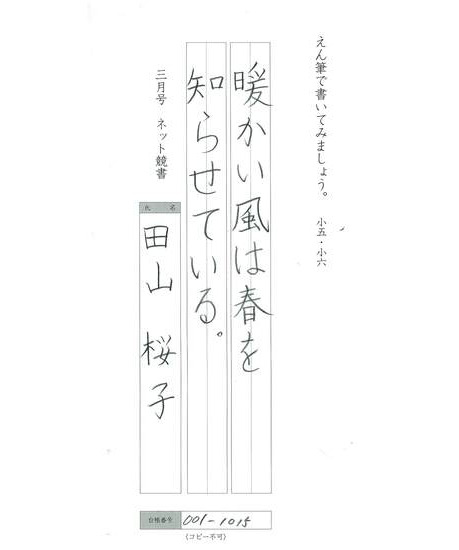 えん筆で書いてみましょう。 小五・小六
暖かい風は春を
知らせている。
三月号 ネット競書
氏名
田山 桜子
台帳番号 001-1015
(コピー不可)